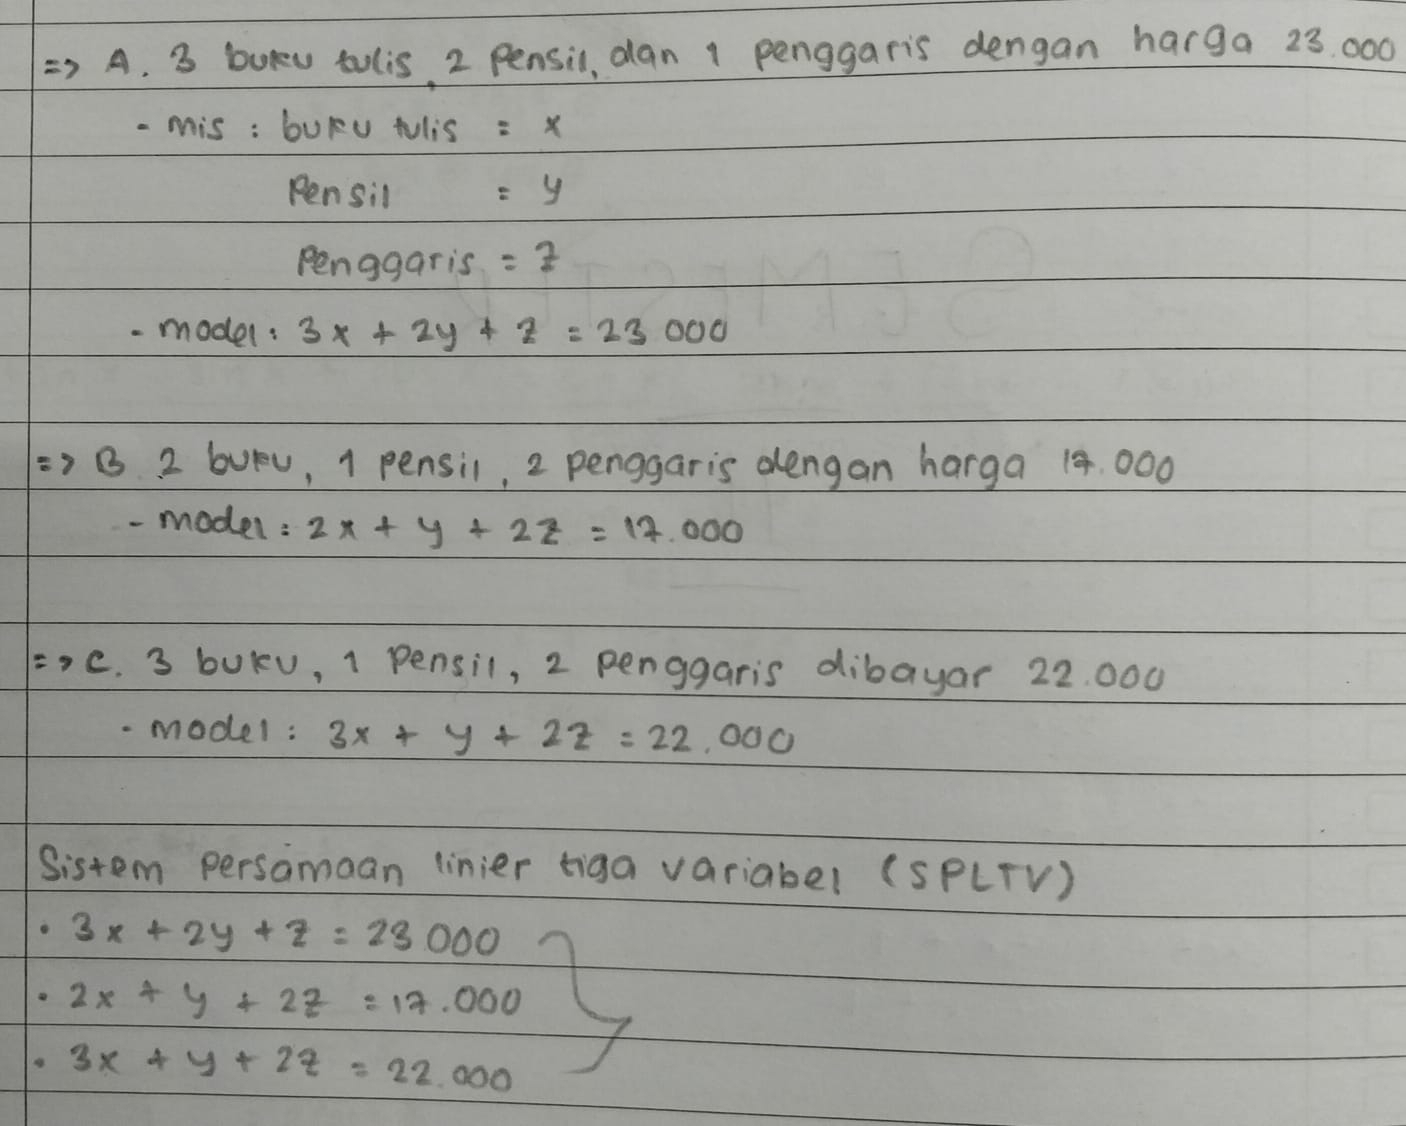 => A. 3 buku tulis, 2 Pensil, dan 1 penggaris dengan harga 23.000
- mis : buku tulis = x
Pensil = y
Penggaris = z
- model : 3x + 2y + z = 23 000
=> B 2 buku, 1 pensil, 2 penggaris dengan harga 17.000
- model : 2x + y + 2z = 17.000
=> C. 3 buku, 1 Pensil, 2 penggaris dibayar 22.000
- model : 3x + y + 2z = 22.000
Sistem persamaan linier tiga variabel (SPLTV)
• 3x + 2y + z = 23 000
• 2x + y + 2z = 17.000
• 3x + y + 2z = 22.000